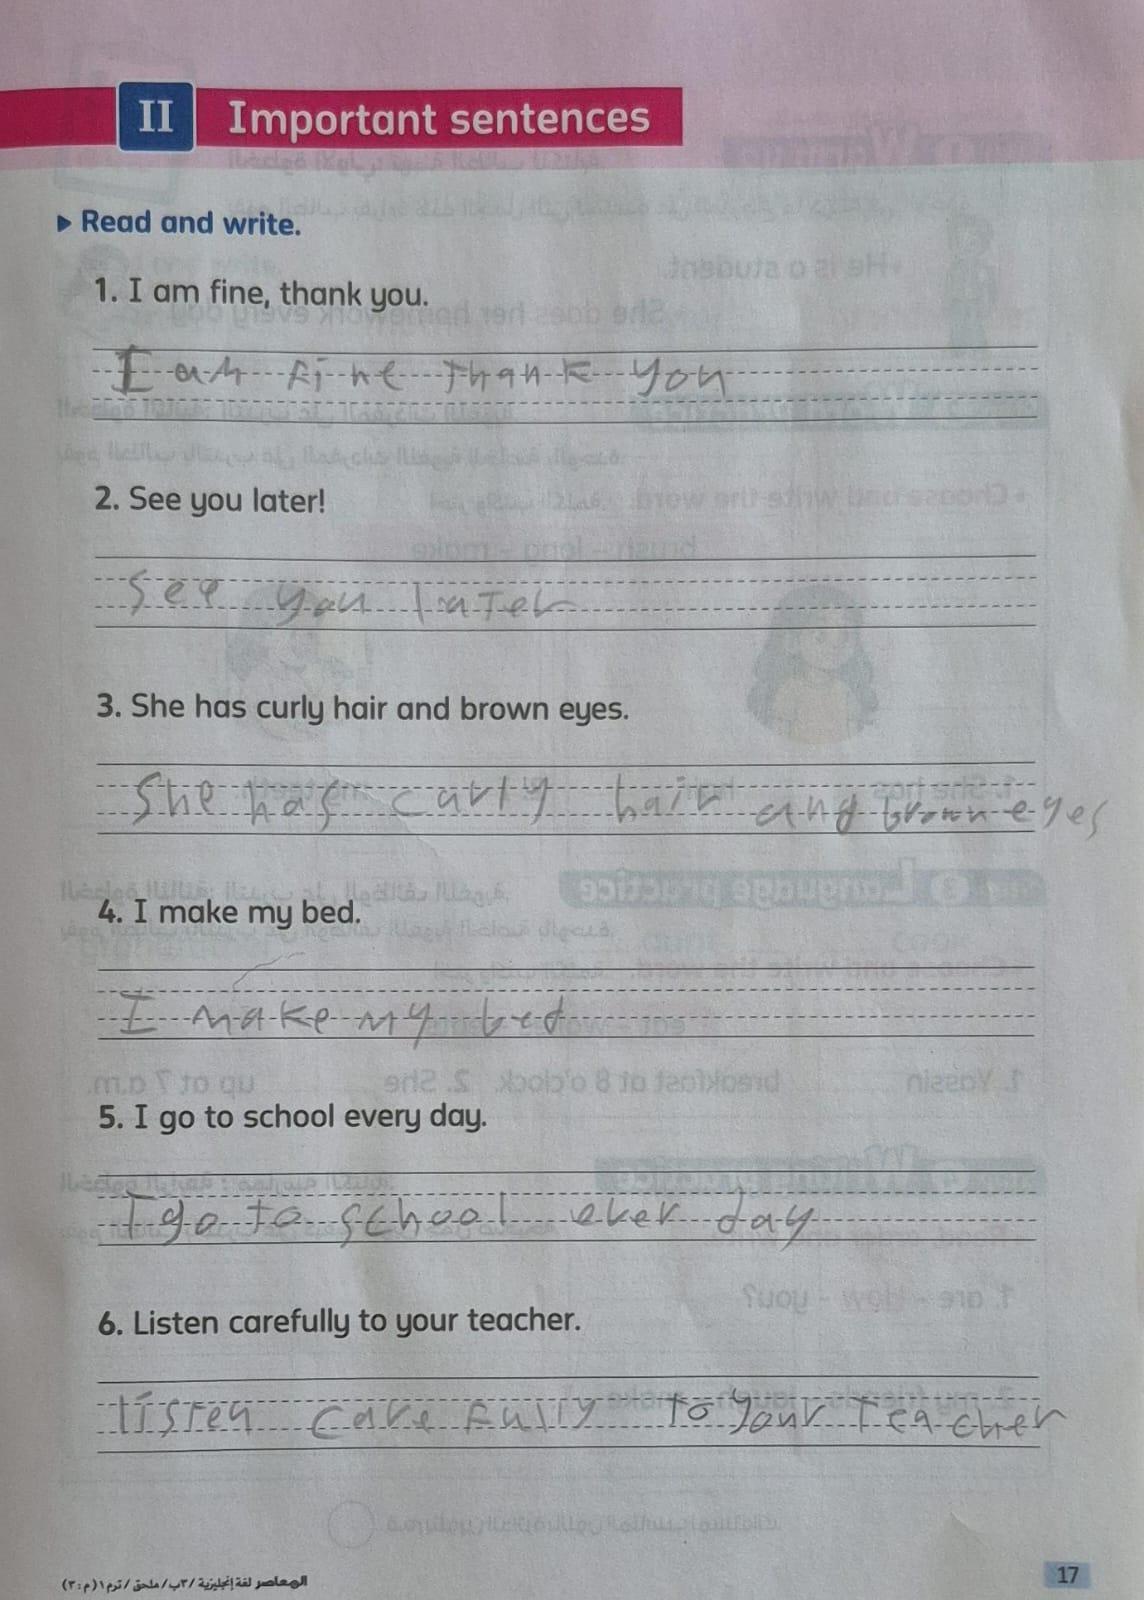 II Important sentences
▶ Read and write.
1. I am fine, thank you.
I am fine thank you
2. See you later!
See you later
3. She has curly hair and brown eyes.
She has carly hair and brown eyes
4. I make my bed.
I make my bed
5. I go to school every day.
I go to school ever day
6. Listen carefully to your teacher.
listen carefully to your teacher
المعاصر لغة إنجليزية /٣ب/ ملحق / ترم١ (م : ٣)
17